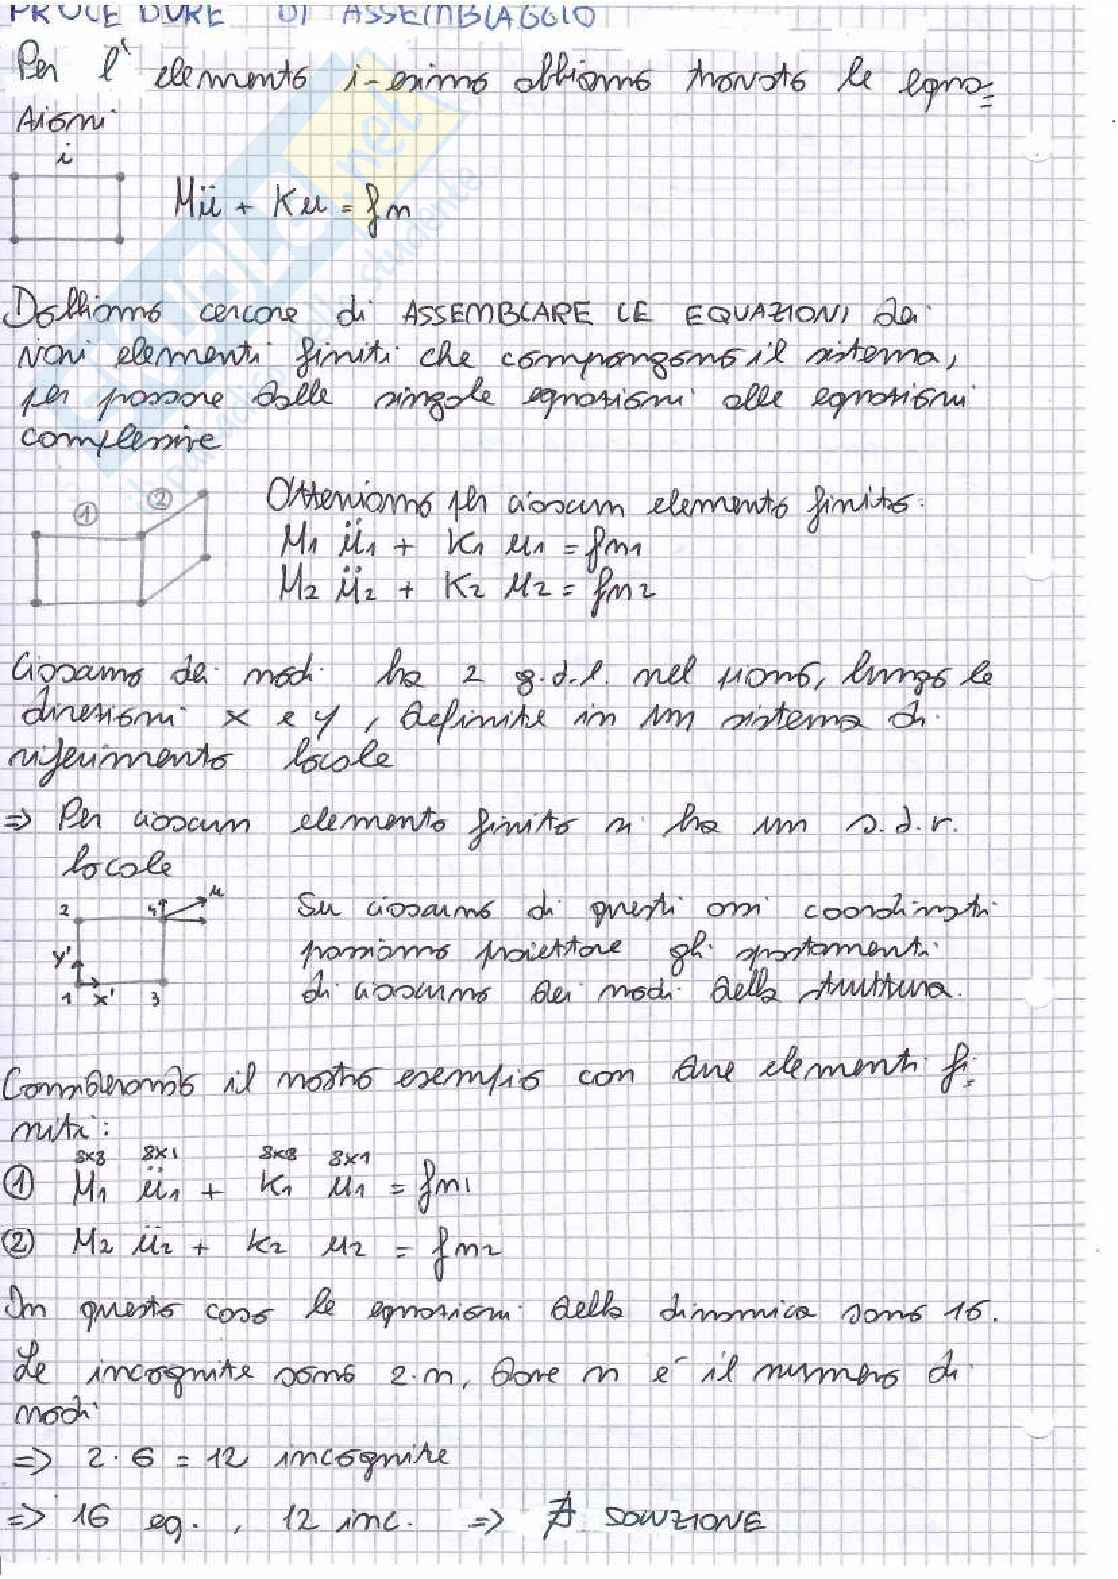 PROCEDURE DI ASSEMBLAGGIO
Per l' elemento i-esimo abbiamo trovato le equa=
zioni
i
Mü + Ku = fn
Dobbiamo cercare di ASSEMBLARE LE EQUAZIONI dei
vari elementi finiti che compongono il sistema,
per passare dalle singole equazioni alle equazioni
complessive
① ②
Otteniamo per ciascun elemento finito:
M1 ü1 + K1 u1 = fn1
M2 ü2 + K2 u2 = fn2
Ciascuno dei nodi ha 2 g.d.l. nel piano, lungo le
direzioni x e y, definite in un sistema di
riferimento locale
=> Per ciascun elemento finito si ha un s.d.r.
locale
2 4 u
y'
1 x' 3
Su ciascuno di questi assi coordinati
possiamo proiettare gli spostamenti
di ciascuno dei nodi della struttura.
Consideriamo il nostro esempio con due elementi fi=
niti:
8x8 8x1 8x8 8x1
① M1 ü1 + K1 u1 = fn1
② M2 ü2 + K2 u2 = fn2
In questo caso le equazioni della dinamica sono 16.
Le incognite sono 2·n, dove n è il numero di
nodi
=> 2·6 = 12 incognite
=> 16 eq., 12 inc. => ∄ SOLUZIONE